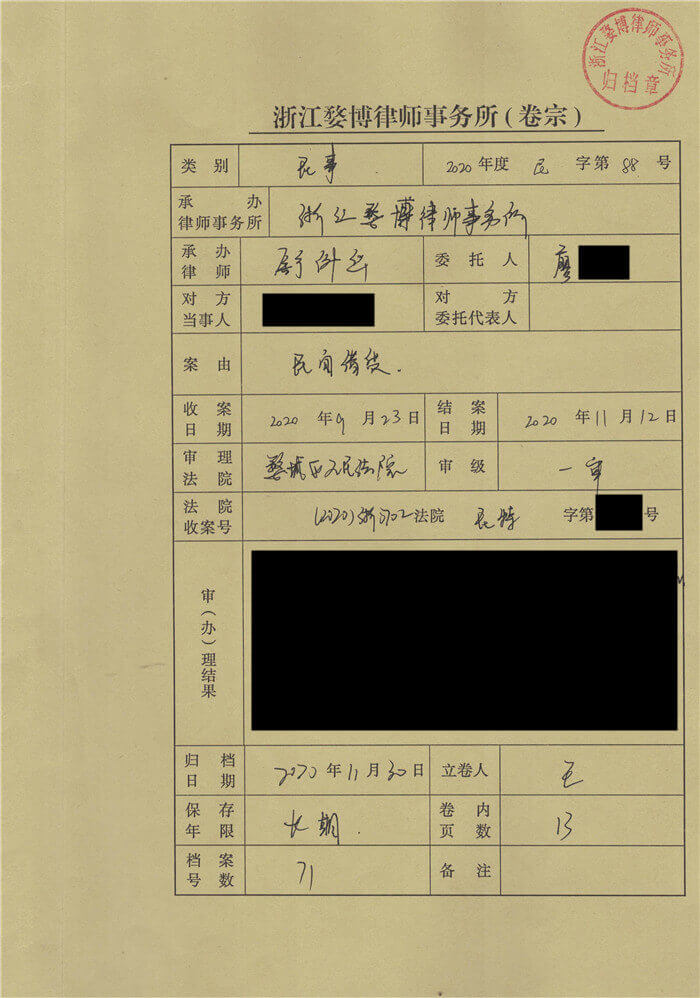 浙江婺博律师事务所
归档章
浙江婺博律师事务所(卷宗)
类别 民事 2020 年度 民 字第 88 号
承办
律师事务所 浙江婺博律师事务所
承办
律师 委托人 廖
对方
当事人 对方
委托代表人
案由 民间借贷.
收案
日期 2020 年 9 月 23 日 结案
日期 2020 年 11 月 12 日
审理
法院 婺城区人民法院 审级 一审
法院
收案号 (2020)浙0702 法院 民特 字第 号
审(办)理结果
归档
日期 2020 年 11 月 30 日 立卷人 王
保存
年限 长期. 卷内
页数 13
档案
号数 71 备注